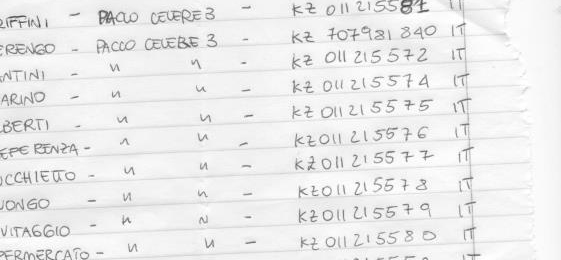 RIFFINI - PACCO CELERE 3 - KZ 011 215581 IT
ERENGO - PACCO CELERE 3 - KZ 707981840 IT
NTINI - " " - KZ 011 215572 IT
ARINO - " " - KZ 011 215574 IT
BERTI - " " - KZ 011 215575 IT
" " - KZ 011 215576 IT
CCHIETTO - " " - KZ 011 215577 IT
ONGO - " " - KZ 011 215578 IT
VITAGGIO - " " - KZ 011 215579 IT
PERMERCATO - " " - KZ 011 215580 IT